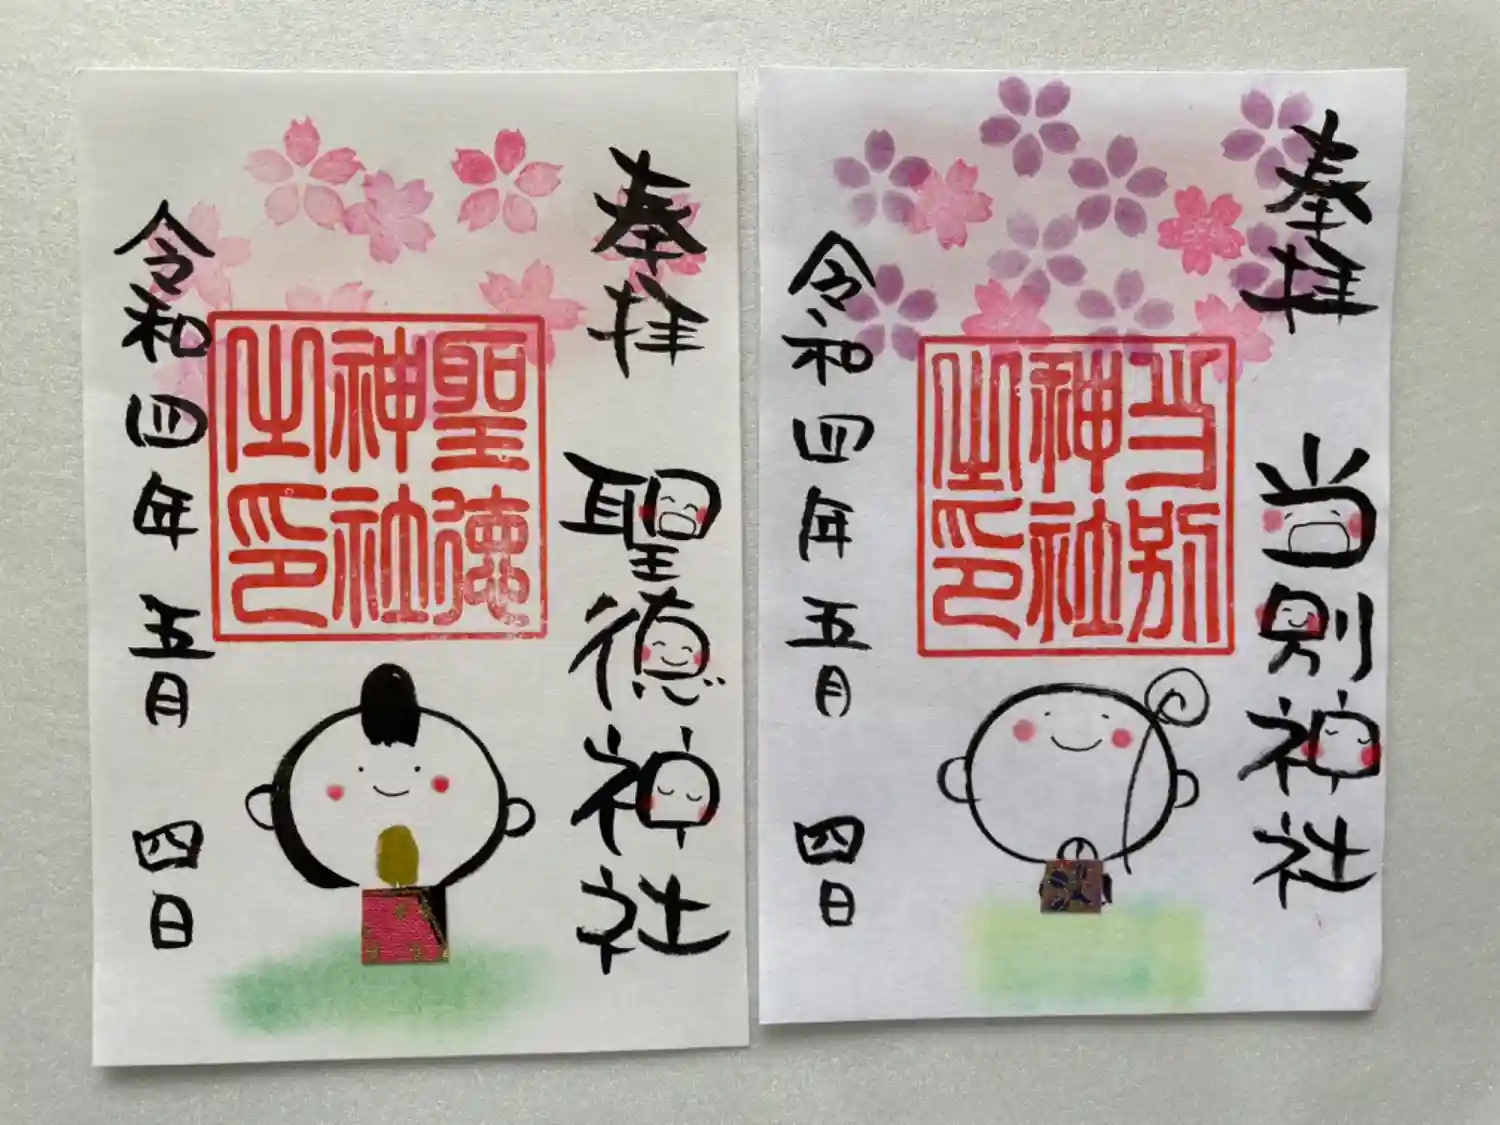 奉拝
聖徳神社
聖徳
神社
之印
令和四年五月四日
奉拝
当別神社
当別
神社
之印
令和四年五月四日